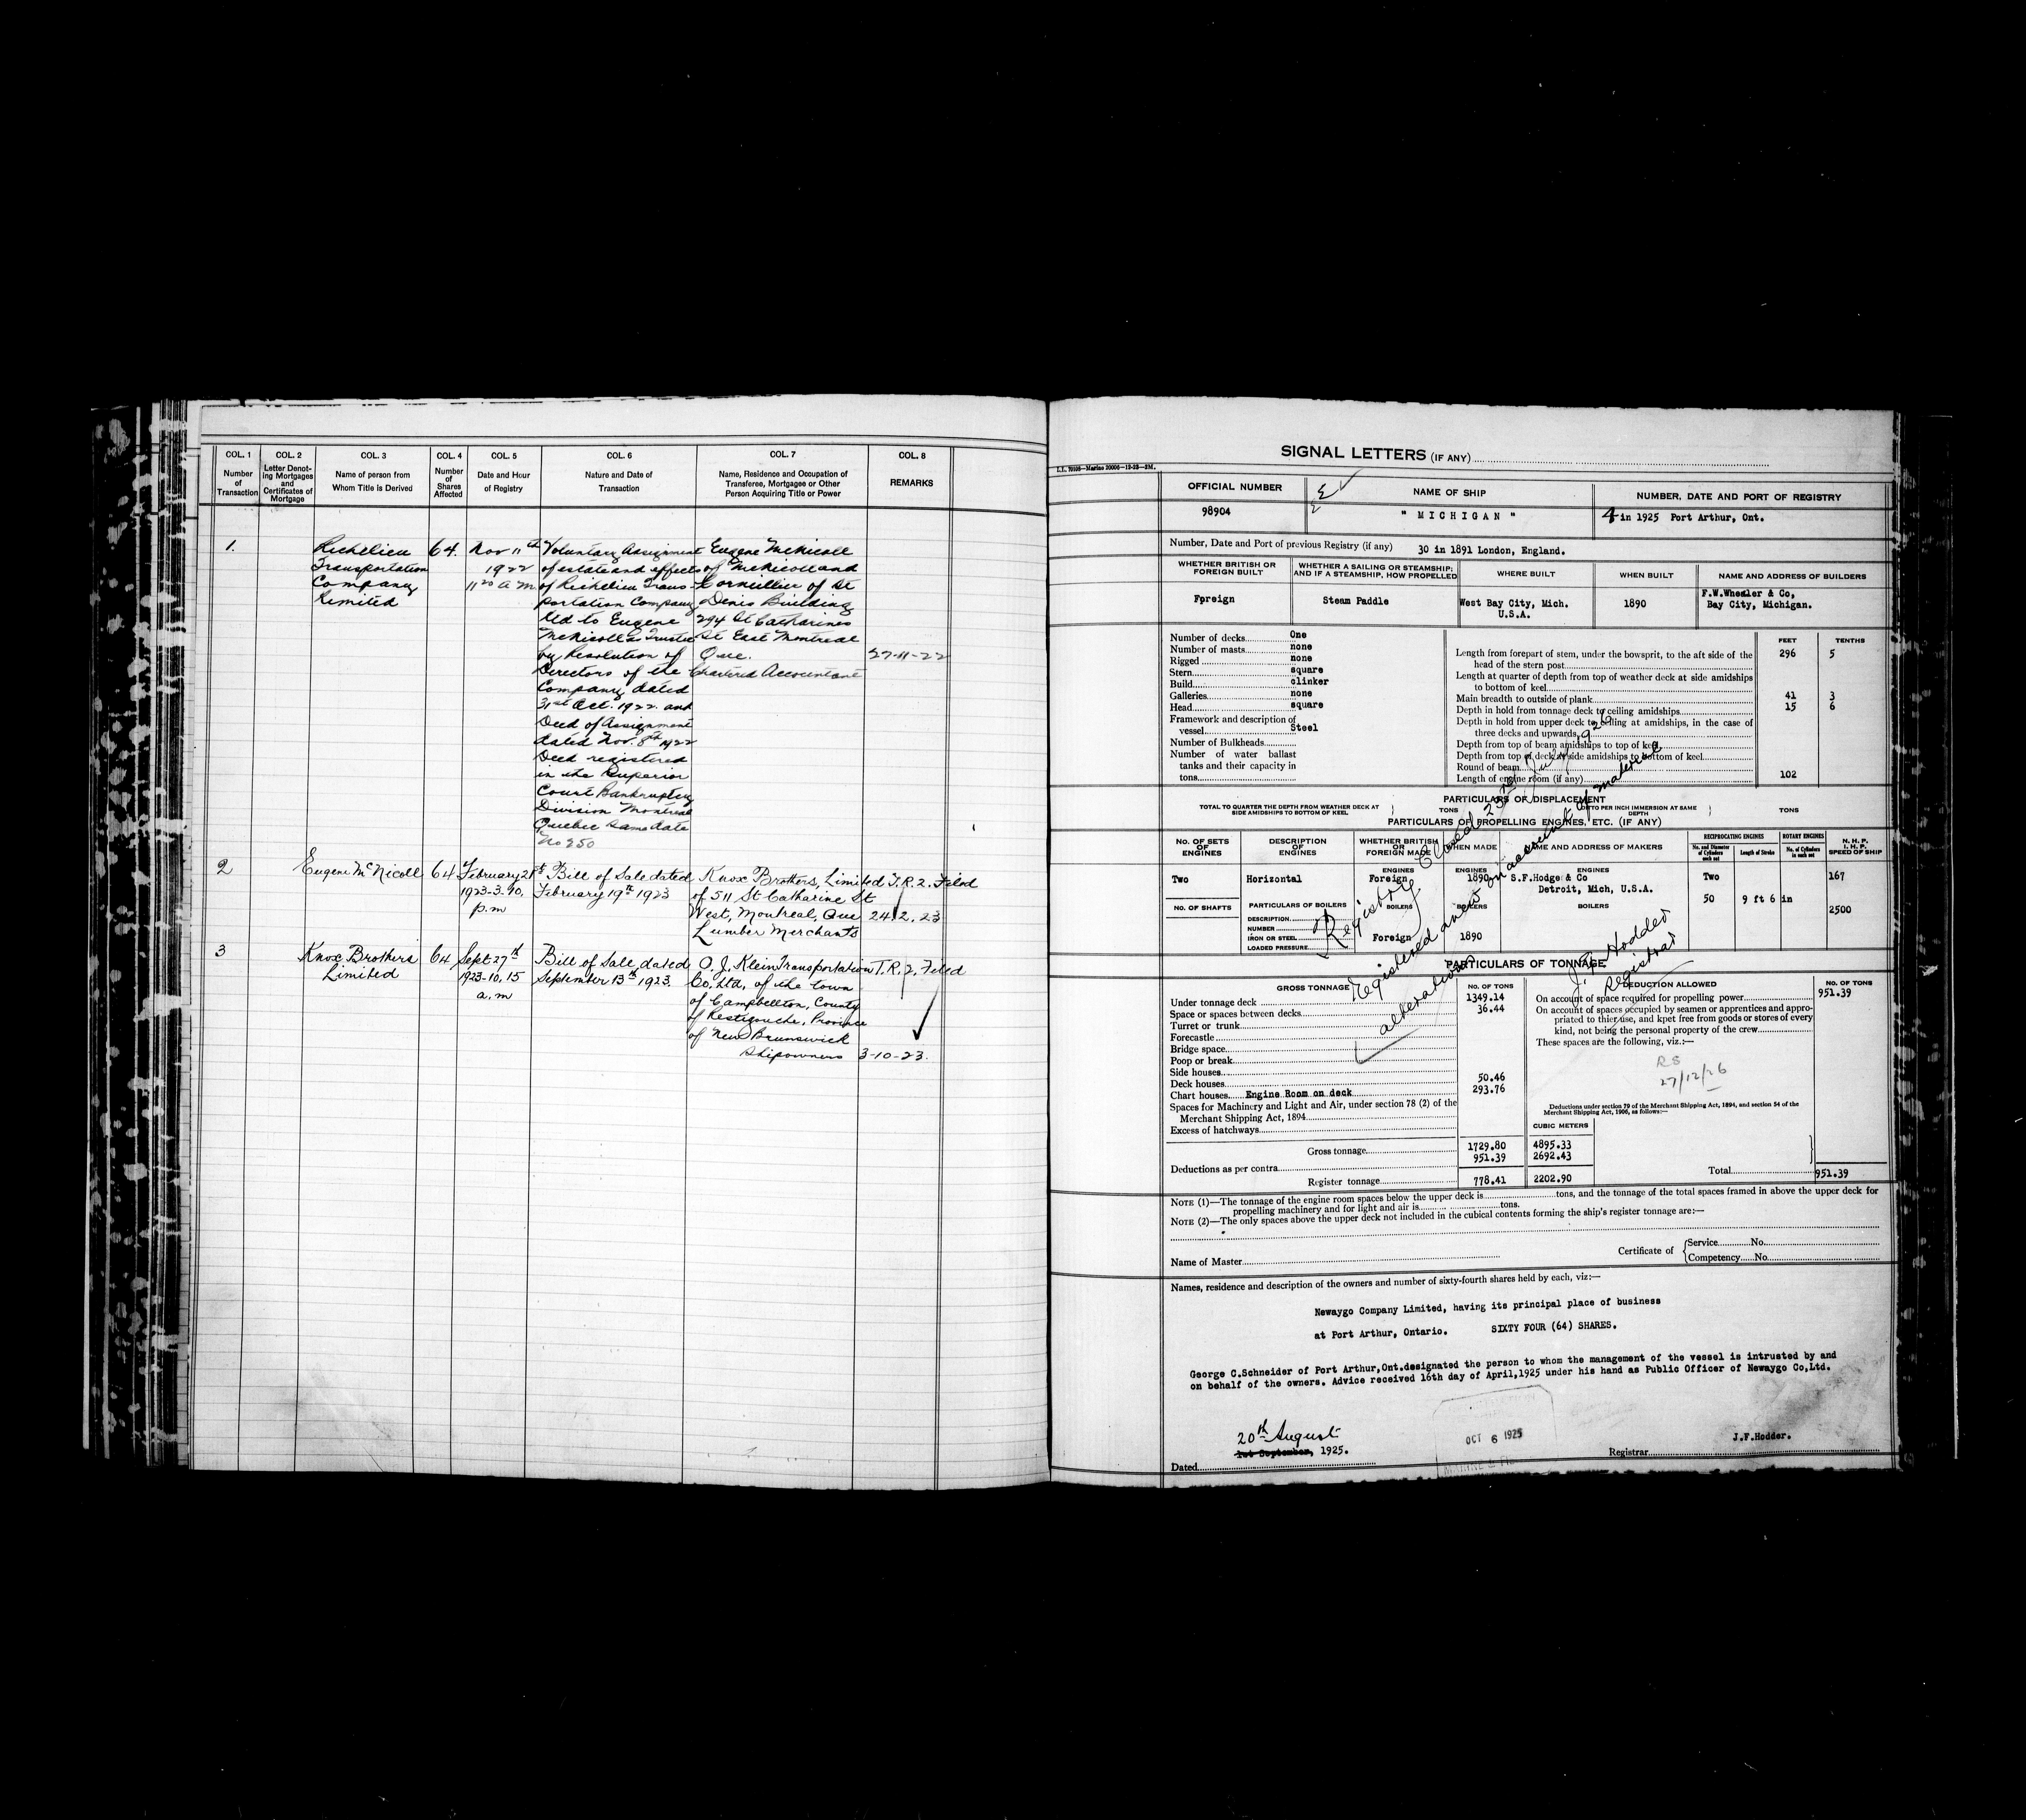 COL. 1 COL. 2 COL. 3 COL. 4 COL. 5 COL. 6 COL. 7 COL. 8
Number of Transaction
Letter Denoting Mortgages and Certificates of Mortgage
Name of person from Whom Title is Derived
Number of Shares Affected
Date and Hour of Registry
Nature and Date of Transaction
Name, Residence and Occupation of Transferee, Mortgagee or Other Person Acquiring Title or Power
REMARKS
1.
Richelieu
Transportation
Company
Limited
64.
Nov 11th
1922
11 20 a m
Voluntary Assignment
of estate and effects
of Richelieu Trans-
portation Company
Ltd to Eugene
McNicoll a Trustee
by Resolution of
Directors of the
Company dated
31st Oct. 1922 and
Deed of Assignment
dated Nov. 8th 1922
Deed registered
in the Superior
Court Bankruptcy
Division Montreal
Quebec same date
No 250
Eugene McNicoll
of McNicoll and
Cormillier of St
Denis Building
294 St Catharines
St East Montreal
Que.
Chartered Accountant
27-11-22
2
Eugene McNicoll
64
February 21st
1923-3.10.
p.m
Bill of Sale dated
February 19th 1923
Knox Brothers, Limited
of 511 St Catharine St
West, Montreal, Que
Lumber Merchants
T.R.2. Filed
24.2.23
3
Knox Brothers
Limited
64
Sept 27th
1923-10.15
a.m
Bill of Sale dated
September 13th 1923.
O. J. Klein Transportation
Co. Ltd, of the town
of Campbellton, County
of Restigouche, Province
of New Brunswick
Shipowners
T.R.2. Filed
3-10-23.
SIGNAL LETTERS (IF ANY)
L.L. 79198—Marine 20006—12-23—2M.
OFFICIAL NUMBER
98904
NAME OF SHIP
" MICHIGAN "
NUMBER, DATE AND PORT OF REGISTRY
4 in 1925 Port Arthur, Ont.
Number, Date and Port of previous Registry (if any) 30 in 1891 London, England.
WHETHER BRITISH OR FOREIGN BUILT
Foreign
WHETHER A SAILING OR STEAMSHIP; AND IF A STEAMSHIP, HOW PROPELLED
Steam Paddle
WHERE BUILT
West Bay City, Mich.
U.S.A.
WHEN BUILT
1890
NAME AND ADDRESS OF BUILDERS
F.W.Wheeler & Co,
Bay City, Michigan.
Number of decks One
Number of masts none
Rigged none
Stern square
Build clinker
Galleries none
Head square
Framework and description of vessel Steel
Number of Bulkheads
Number of water ballast tanks and their capacity in tons
FEET TENTHS
Length from forepart of stem, under the bowsprit, to the aft side of the head of the stern post 296 5
Length at quarter of depth from top of weather deck at side amidships to bottom of keel
Main breadth to outside of plank 41 3
Depth in hold from tonnage deck to ceiling amidships 15 6
Depth in hold from upper deck to ceiling at amidships, in the case of three decks and upwards
Depth from top of beam amidships to top of keel
Depth from top of deck at side amidships to bottom of keel
Round of beam
Length of engine room (if any) 102
PARTICULARS OF DISPLACEMENT
TOTAL TO QUARTER THE DEPTH FROM WEATHER DECK AT SIDE AMIDSHIPS TO BOTTOM OF KEEL TONS
DITTO PER INCH IMMERSION AT SAME DEPTH TONS
PARTICULARS OF PROPELLING ENGINES, ETC. (IF ANY)
NO. OF SETS OF ENGINES
Two
NO. OF SHAFTS
DESCRIPTION OF ENGINES
Horizontal
PARTICULARS OF BOILERS
DESCRIPTION
NUMBER
IRON OR STEEL
LOADED PRESSURE
WHETHER BRITISH OR FOREIGN MADE
ENGINES
Foreign
BOILERS
Foreign
WHEN MADE
ENGINES
1890
BOILERS
1890
NAME AND ADDRESS OF MAKERS
ENGINES
S.F.Hodge & Co
Detroit, Mich, U.S.A.
BOILERS
RECIPROCATING ENGINES
No. and Diameter of Cylinders in each set
Length of Stroke
ROTARY ENGINES
No. of Cylinders in each set
N. H. P.
I. H. P.
SPEED OF SHIP
Two
50
9 ft 6 in
167
2500
Registry Closed 23rd July 1926
Registered anew on account of material
alterations
J. F. Hodder
Registrar
PARTICULARS OF TONNAGE
GROSS TONNAGE NO. OF TONS
Under tonnage deck 1349.14
Space or spaces between decks 36.44
Turret or trunk
Forecastle
Bridge space
Poop or break
Side houses
Deck houses 50.46
Chart houses Engine Room on deck 293.76
Spaces for Machinery and Light and Air, under section 78 (2) of the Merchant Shipping Act, 1894
Excess of hatchways
Gross tonnage 1729.80 4895.33
Deductions as per contra 951.39 2692.43
Register tonnage 778.41 2202.90
CUBIC METERS
DEDUCTION ALLOWED NO. OF TONS
On account of space required for propelling power 951.39
On account of spaces occupied by seamen or apprentices and appropriated to thier use, and kpet free from goods or stores of every kind, not being the personal property of the crew
These spaces are the following, viz.:—
RS
27/12/26
Deductions under section 79 of the Merchant Shipping Act, 1894, and section 54 of the Merchant Shipping Act, 1906, as follows:—
Total 951.39
NOTE (1)—The tonnage of the engine room spaces below the upper deck is tons, and the tonnage of the total spaces framed in above the upper deck for
propelling machinery and for light and air is tons.
NOTE (2)—The only spaces above the upper deck not included in the cubical contents forming the ship's register tonnage are:—
Name of Master
Certificate of Service No.
Competency No.
Names, residence and description of the owners and number of sixty-fourth shares held by each, viz:—
Newaygo Company Limited, having its principal place of business
at Port Arthur, Ontario. SIXTY FOUR (64) SHARES.
George C.Schneider of Port Arthur,Ont.designated the person to whom the management of the vessel is intrusted by and
on behalf of the owners. Advice received 16th day of April,1925 under his hand as Public Officer of Newaygo Co,Ltd.
20th August
1st September, 1925.
Dated
OCT 6 1925
J.F.Hodder.
Registrar